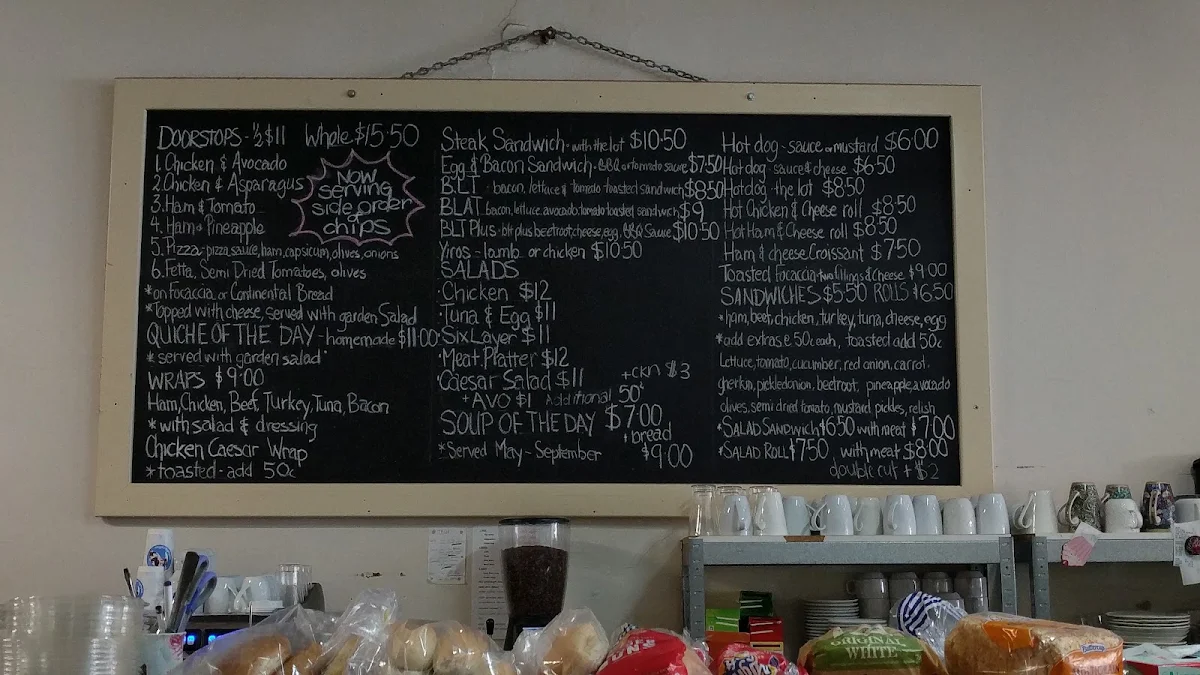 DOORSTOPS - ½ $11 Whole $15.50
1. Chicken & Avocado
2. Chicken & Asparagus
3. Ham & Tomato
4. Ham & Pineapple
5. Pizza - pizza sauce, ham, capsicum, olives, onions
6. Fetta, Semi Dried Tomatoes, olives
*on Focaccia or Continental Bread
*Topped with cheese, served with garden Salad
NOW
serving
side order
of
chips
QUICHE OF THE DAY - homemade $11.00
*served with garden salad
WRAPS $9.00
Ham, Chicken, Beef, Turkey, Tuna, Bacon
*with salad & dressing
Chicken Caesar Wrap
*toasted - add 50c
Steak Sandwich - with the lot $10.50
Egg & Bacon Sandwich - BBQ or tomato sauce $7.50
BLT - bacon, lettuce & tomato toasted sandwich $8.50
BLAT bacon, lettuce, avocado, tomato toasted sandwich $9
BLT Plus - blt plus beetroot, cheese, egg, BBQ Sauce $10.50
Yiros - lamb or chicken $10.50
SALADS
·Chicken $12
·Tuna & Egg $11
·Six Layer $11
·Meat Platter $12
·Caesar Salad $11 +ckn $3
+AVO $1 Additional 50¢
SOUP OF THE DAY $7.00
+bread
*Served May - September $9.00
Hot dog - sauce or mustard $6.00
Hot dog - sauce & cheese $6.50
Hot dog - the lot $8.50
Hot Chicken & Cheese roll $8.50
Hot Ham & Cheese roll $8.50
Ham & cheese Croissant $7.50
Toasted focaccia - two fillings & cheese $9.00
SANDWICHES $5.50 ROLLS $6.50
*ham, beef, chicken, turkey, tuna, cheese, egg
*add extras @ 50c each, toasted add 50c
Lettuce, tomato, cucumber, red onion, carrot,
gherkin, pickled onion, beetroot, pineapple, avocado
olives, semi dried tomato, mustard pickles, relish
*SALAD SANDWICH $6.50 with meat $7.00
*SALAD ROLL $7.50 with meat $8.00
double cut + $2
ORIGINAL
WHITE